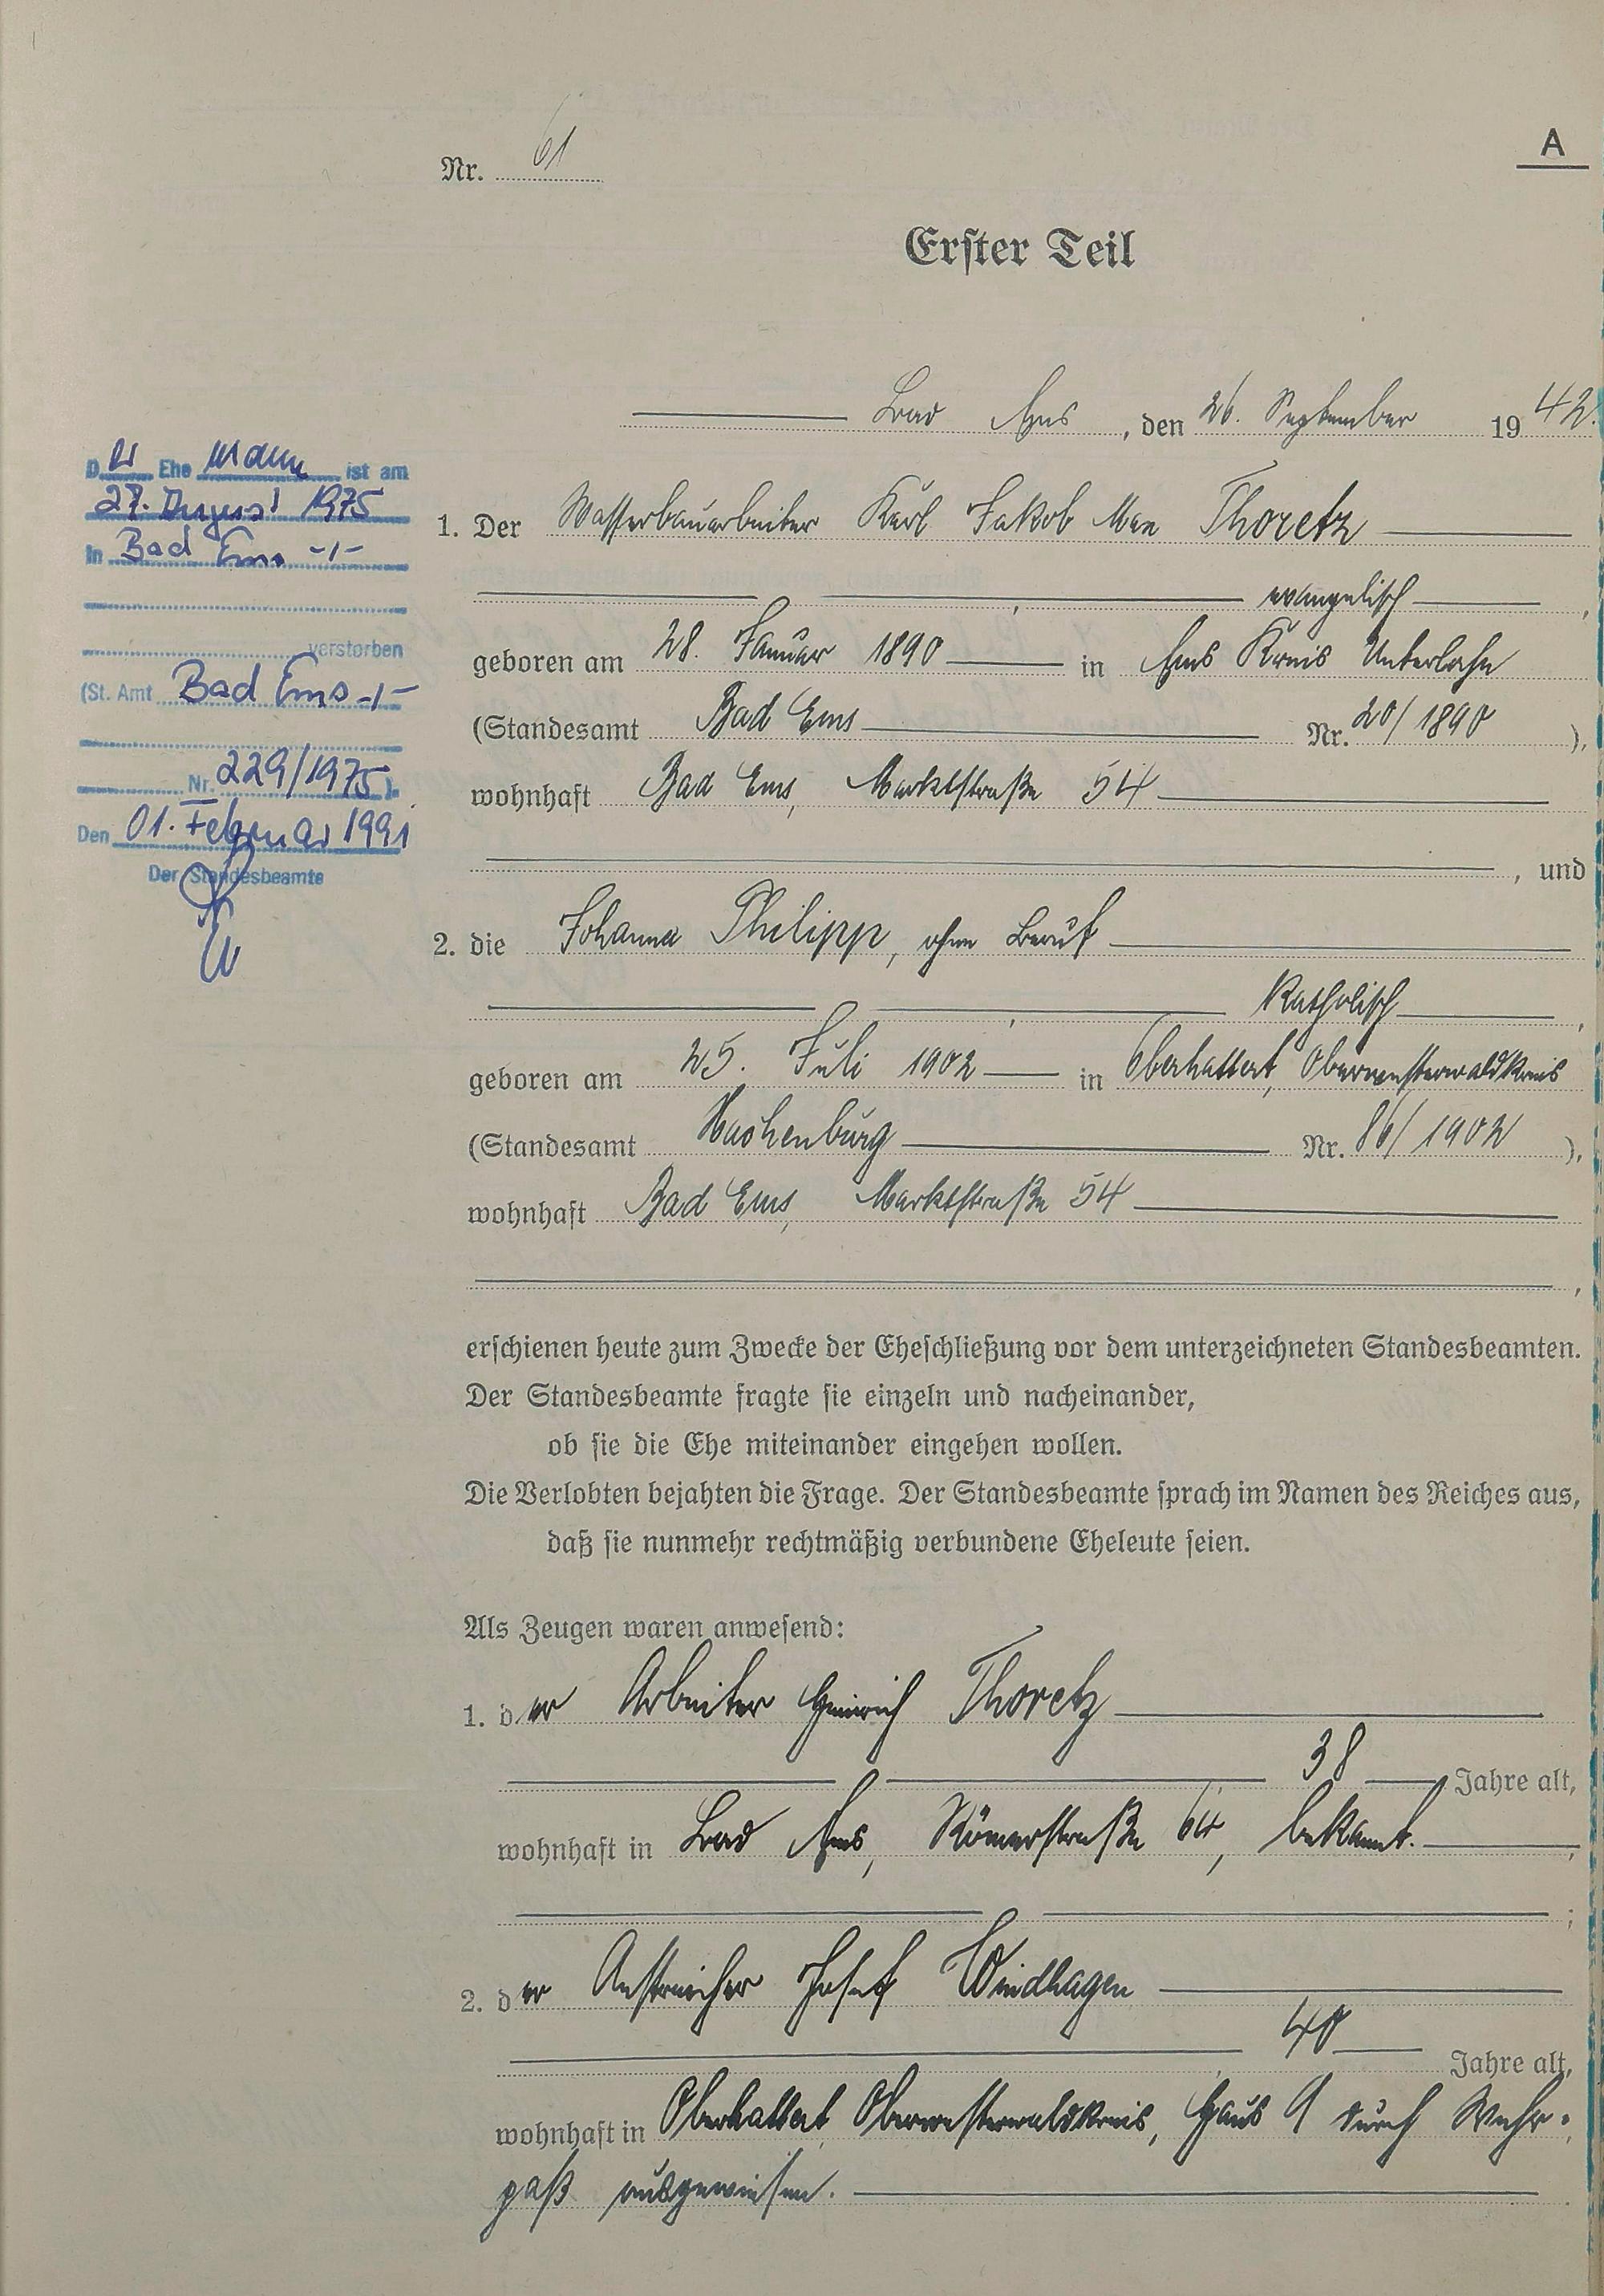 Nr. 61
A
Erster Teil
Bad Ems, den 26. September 1942.
1. Der Wasserbauarbeiter Karl Jakob Max Thoretz
evangelisch,
geboren am 28. Januar 1890 in Ems Kreis Unterlahn
(Standesamt Bad Ems Nr. 20/1890),
wohnhaft Bad Ems, Marktstraße 54
, und
2. die Johanna Philipp, ohne Beruf
katholisch,
geboren am 25. Juli 1902 in Oberhattert, Oberwesterwaldkreis
(Standesamt Hachenburg Nr. 86/1902),
wohnhaft Bad Ems, Marktstraße 54
,
erschienen heute zum Zwecke der Eheschließung vor dem unterzeichneten Standesbeamten.
Der Standesbeamte fragte sie einzeln und nacheinander,
ob sie die Ehe miteinander eingehen wollen.
Die Verlobten bejahten die Frage. Der Standesbeamte sprach im Namen des Reiches aus,
daß sie nunmehr rechtmäßig verbundene Eheleute seien.
Als Zeugen waren anwesend:
1. der Arbeiter Heinrich Thoretz
38 Jahre alt,
wohnhaft in Bad Ems, Römerstraße 64, bekannt.
;
2. der Anstreicher Josef Windhagen
40 Jahre alt,
wohnhaft in Oberhattert, Oberwesterwaldkreis, Haus 9 durch Wehr-
paß ausgewiesen.
Der Ehemann ist am
27. August 1975
in Bad Ems -/-
verstorben
(St. Amt Bad Ems -/-
Nr. 229/1975).
Den 01. Februar 1991
Der Standesbeamte